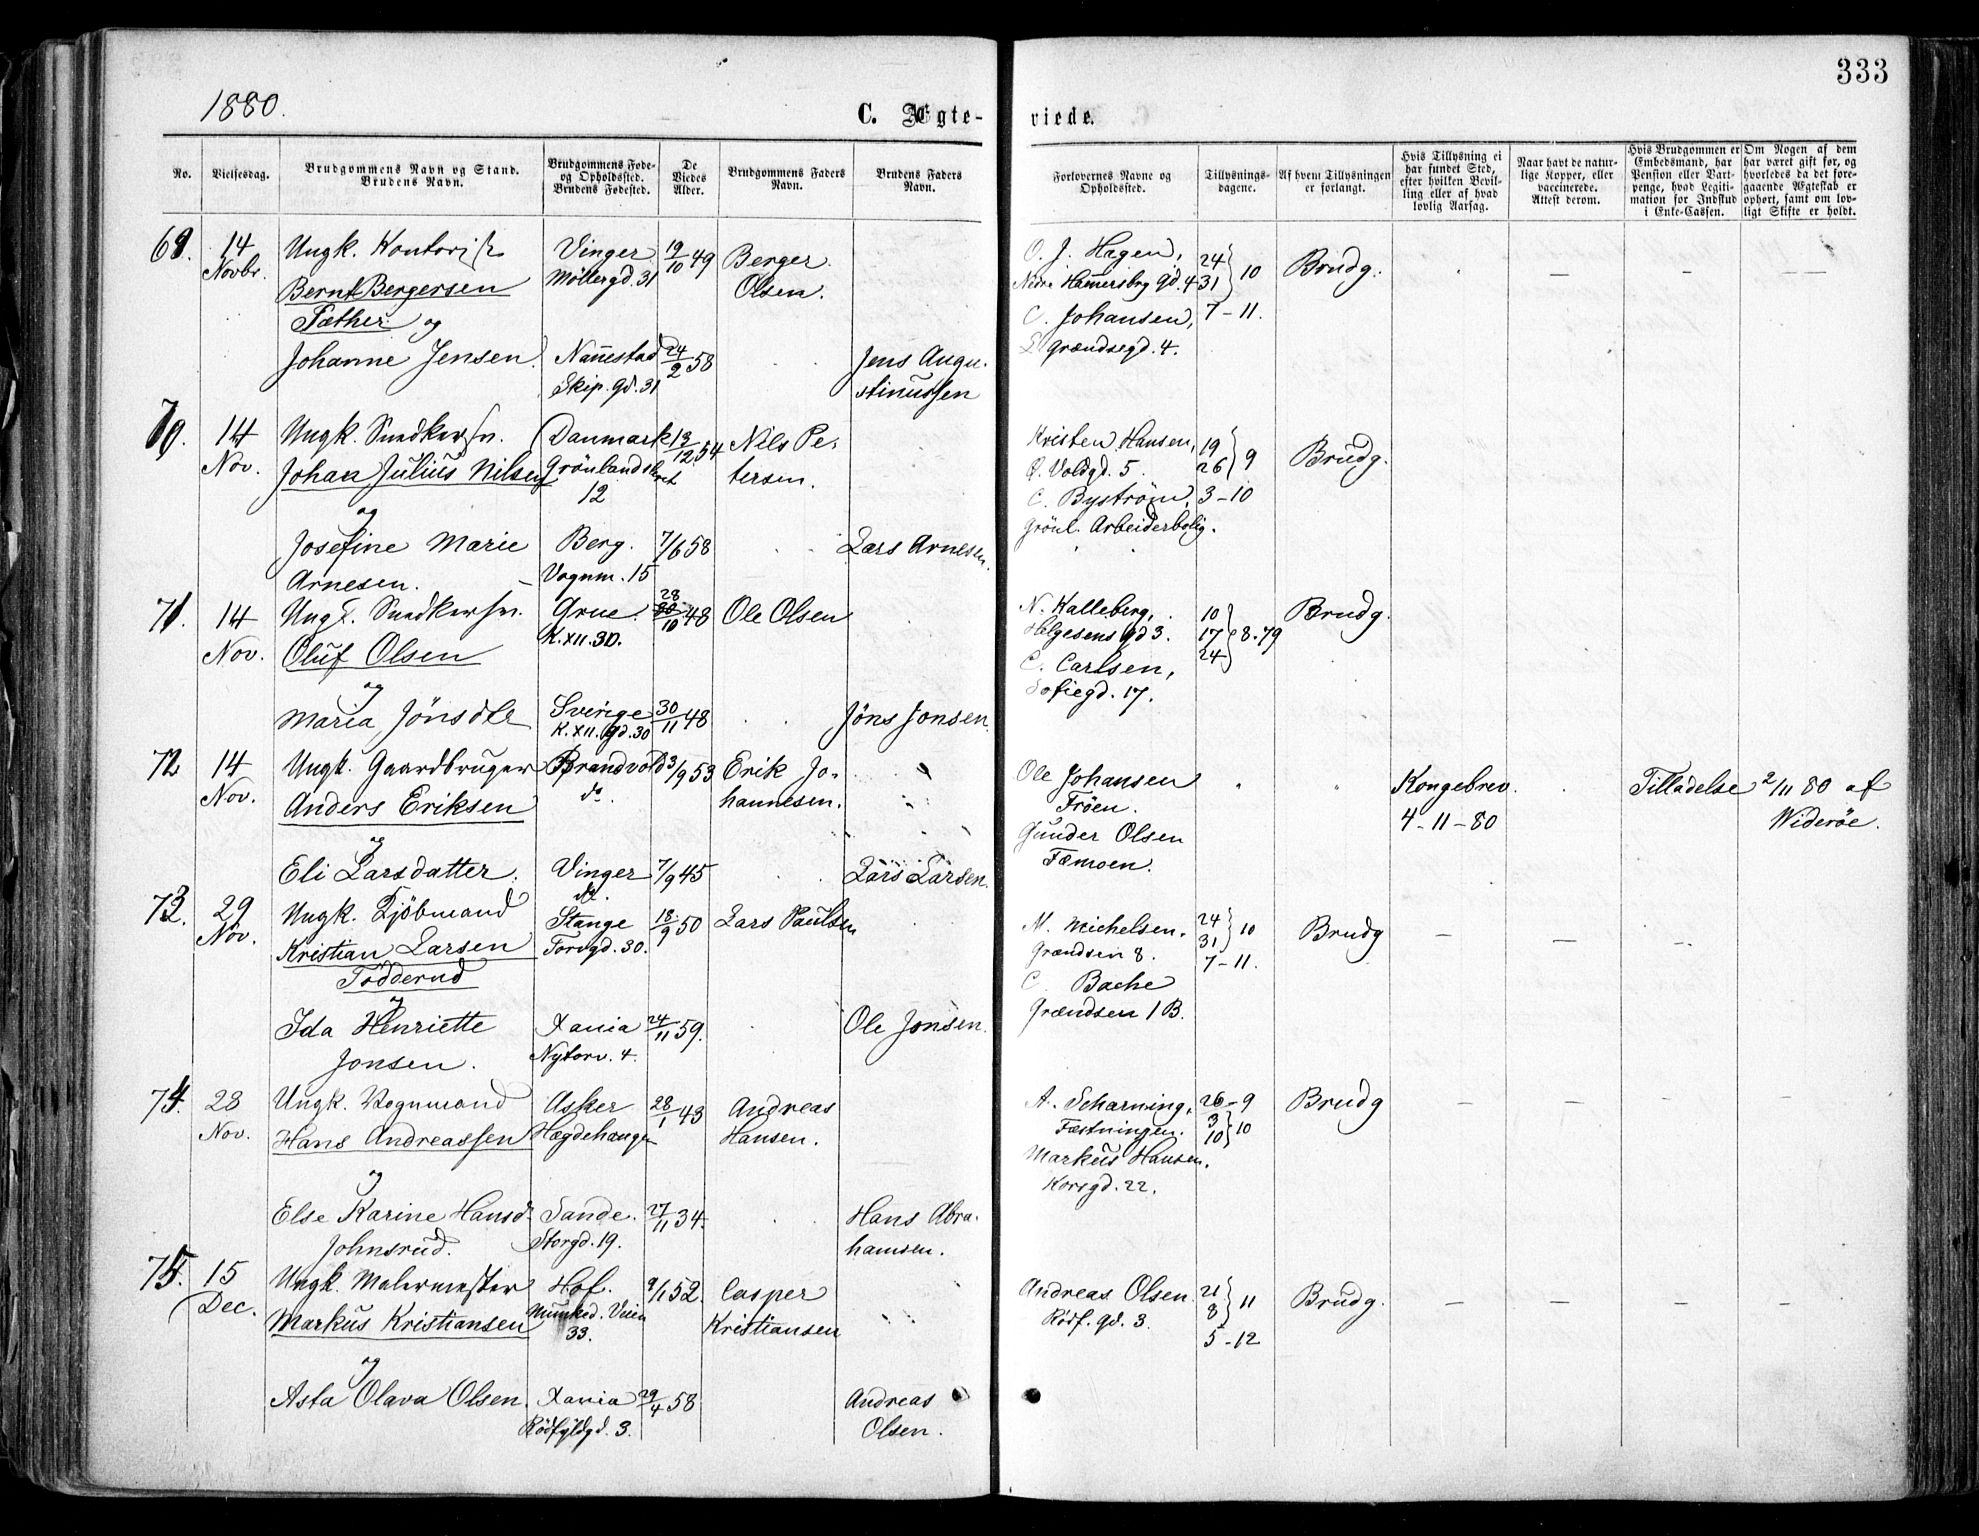 333
1880.
C. Ægte-
viede.
No.
Vielsesdag.
Brudgommens Navn og Stand.
Brudens Navn.
Brudgommens Føde-
og Opholdssted.
Brudens Fødested.
De
Viedes
Alder.
Brudgommens Faders
Navn.
Brudens Faders
Navn.
Forlovernes Navne og
Opholdssted.
Tillysnings-
dagene.
Af hvem Tillysningen
er forlangt.
Hvis Tillysning ei
har fundet Sted,
efter hvilken Bevil-
ling eller af hvad
lovlig Aarsag.
Naar havt de natur-
lige Kopper, eller
vaccinerede.
Attest derom.
Hvis Brudgommen er
Embedsmand, har
Pension eller Vart-
penge, hvad Legiti-
mation for Indskud
i Enke-Cassen.
Om Nogen af dem
har været gift før, og
hvorledes da det fore-
gaaende Ægteskab er
ophørt, samt om lov-
ligt Skifte er holdt.
69.
14
Novbr.
Ungk. Kontorist
Bernt Bergersen
Tæther og
Johanne Jensen
Vinger
Möllergd. 31
Nannestad
Skip. gd. 31
19/10 49
24/2 58
Berger
Olsen.
Jens Augu-
stinussen
O. J. Hagen,
Nedre Hamersbrg gd. 4
C. Johansen,
Grændsegd. 4.
24
31 } 10
7-11.
Brudg.
70.
14
Nov.
Ungk. Snedkersv.
Johan Julius Nilsen
og
Josefine Marie
Arnesen.
Danmark
Grönlandsleret
12
Berg.
Vognm. 15
13/12 54
7/6 58
Nils Pe-
tersen.
Lars Arnesen.
Kristen Hansen,
Ø. Voldgd. 5.
C. Byström,
Grönl. Arbeiderbolig.
19
26 } 9
3-10
Brudg.
71.
14
Nov.
Ungk. Snedkersv.
Oluf Olsen
og
Maria Jönsdtr
Grue.
K. XII. 30.
Sverige
K. XII. gd. 30
28/10 48
30/11 48
Ole Olsen
Jöns Jonsen.
N. Kalleberg,
Helgesens gd 3.
C. Carlsen,
Sofiegd. 17.
10
17
24 } 8-79
Brudg.
72
14
Nov.
Ungk. Gaardbruger
Anders Eriksen
og
Eli Larsdatter.
Brandvold
do.
Vinger
do.
3/9 53
7/9 45
Erik Jo-
hannesen.
Lars Larsen.
Ole Johansen
Fröen.
Gunder Olsen
Tæmoen.
Kongebrev.
4-11-80
Tilladelse 2/11 80 af
Wideröe.
73.
29
Nov.
Ungk. Kjöbmand
Kristian Larsen
Tödderud
og
Ida Henriette
Jonsen.
Stange
Torvgd. 30.
Xania
Nytorv. 4.
18/9 50
24/11 59.
Lars Paulsen
Ole Jonsen.
M. Michelsen.
Grændsen 8.
C. Bache
Grændsen 1 B.
24
31 } 10
7-11.
Brudg
74.
28
Nov.
Ungk. Vognmand
Hans Andreassen
og
Else Karine Hansd.
Johnsrud.
Asker
Hægdehaugen
Sande.
Storgd. 19.
28/1 43
27/11 34.
Andreas
Hansen.
Hans Abra-
hamsen.
A. Scharning,
Fæstningen.
Markus Hansen.
Korsgd. 22.
26-9
3
10 } 10
Brudg
75.
15
Dec.
Ungk. Malermester
Markus Kristiansen
og
Asta Olava Olsen.
Hof.
Munked. Veien
33.
Xania
Rödfyldgd. 3.
9/1 52.
29/4 58
Casper
Kristiansen
Andreas
Olsen.
Andreas Olsen.
Rödf. gd. 3.
21
8 } 11
5-12
Brudg.